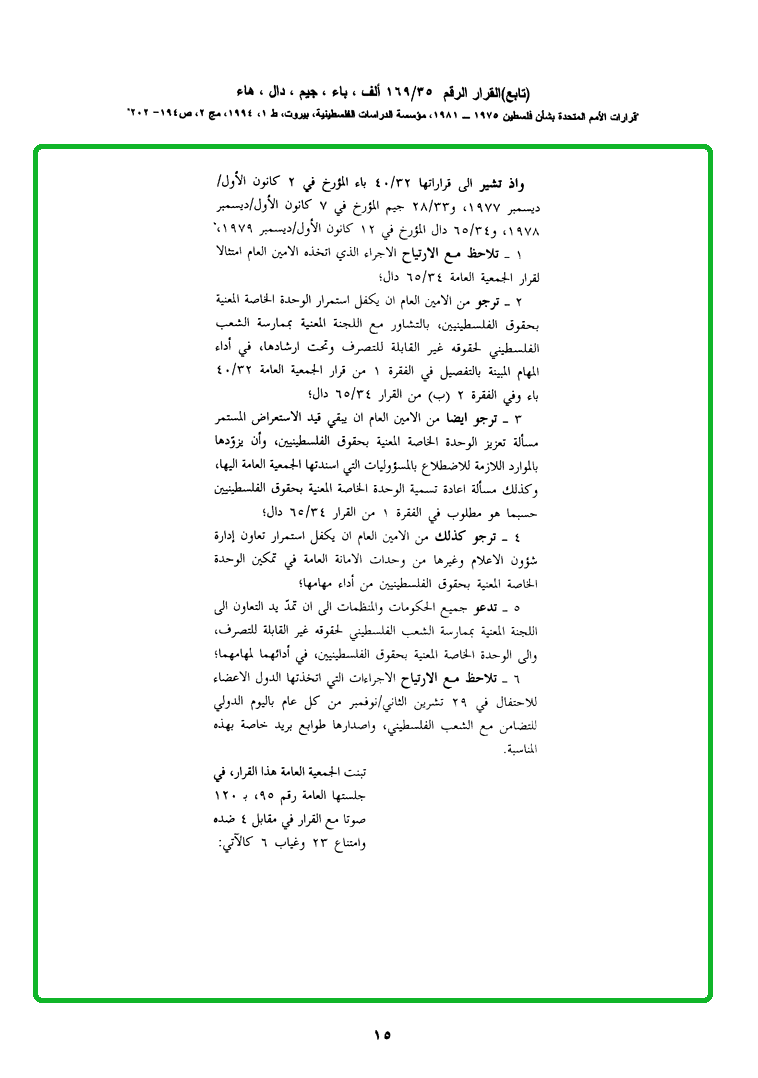 (تابع)القرار الرقم ١٦٩/٣٥ ألف ، باء ، جيم ، دال ، هاء
"قرارات الأمم المتحدة بشأن فلسطين ١٩٧٥ ــ ١٩٨١، مؤسسة الدراسات الفلسطينية، بيروت، ط ١، ١٩٩٤، مج ٢، ص١٩٤- ٢٠٢"
واذ تشير الى قراراتها ٤٠/٣٢ باء المؤرخ في ٢ كانون الأول/
ديسمبر ١٩٧٧، و٢٨/٣٣ جيم المؤرخ في ٧ كانون الأول/ديسمبر
١٩٧٨، و٦٥/٣٤ دال المؤرخ في ١٢ كانون الأول/ديسمبر ١٩٧٩،
١ ـ تلاحظ مـع الارتياح الاجراء الذي اتخذه الامين العام امتثالا
لقرار الجمعية العامة ٦٥/٣٤ دال؛
٢ ـ ترجو من الامين العام ان يكفل استمرار الوحدة الخاصة المعنية
بحقوق الفلسطينيين، بالتشاور مع اللجنة المعنية بممارسة الشعب
الفلسطيني لحقوقه غير القابلة للتصرف وتحت ارشادها، في أداء
المهام المبينة بالتفصيل في الفقرة ١ من قرار الجمعية العامة ٤٠/٣٢
باء وفي الفقرة ٢ (ب) من القرار ٦٥/٣٤ دال؛
٣ ـ ترجو ايضا من الامين العام ان يبقي قيد الاستعراض المستمر
مسألة تعزيز الوحدة الخاصة المعنية بحقوق الفلسطينيين، وأن يزوّدها
بالموارد اللازمة للاضطلاع بالمسؤوليات التي اسندتها الجمعية العامة اليها،
وكذلك مسألة اعادة تسمية الوحدة الخاصة المعنية بحقوق الفلسطينيين
حسبما هو مطلوب في الفقرة ١ من القرار ٦٥/٣٤ دال؛
٤ ـ ترجو كذلك من الامين العام ان يكفل استمرار تعاون إدارة
شؤون الاعلام وغيرها من وحدات الامانة العامة في تمكين الوحدة
الخاصة المعنية بحقوق الفلسطينيين من أداء مهامها؛
٥ ـ تدعو جميع الحكومات والمنظمات الى ان تمدّ يد التعاون الى
اللجنة المعنية بممارسة الشعب الفلسطيني لحقوقه غير القابلة للتصرف،
والى الوحدة الخاصة المعنية بحقوق الفلسطينيين، في أدائهما لمهامهما؛
٦ ـ تلاحظ مـع الارتياح الاجراءات التي اتخذتها الدول الاعضاء
للاحتفال في ٢٩ تشرين الثاني/نوفمبر من كل عام باليوم الدولي
للتضامن مع الشعب الفلسطيني، واصدارها طوابع بريد خاصة بهذه
المناسبة.
تبنت الجمعية العامة هذا القرار، في
جلستها العامة رقم ٩٥، بـ ١٢٠
صوتا مع القرار في مقابل ٤ ضده
وامتناع ٢٣ وغياب ٦ كالآتي:
١٥